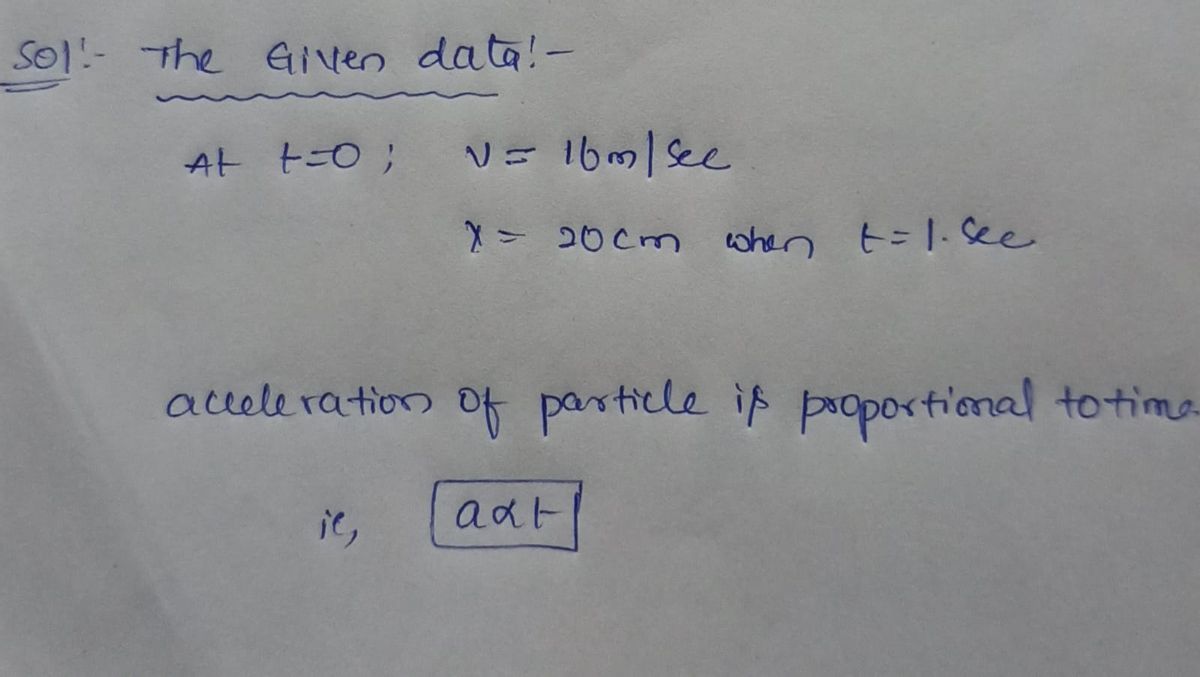 Sol!- The Given data!-
At t=0; v= 16m/sec
x= 20cm when t=1.sec
acceleration of particle is proportional to time
ie, a∝t